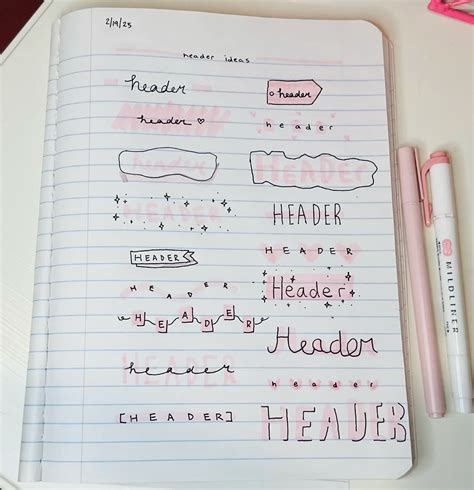 2/19/25
header ideas
header
header
header ♡
h e a d e r
header
HEADER
HEADER
HEADER
HEADER
H E A D E R
H E A D E R
Header
H E A D E R
Header
header
HEADER
h e a d e r
[ H E A D E R ]
HEADER
MILDLINER